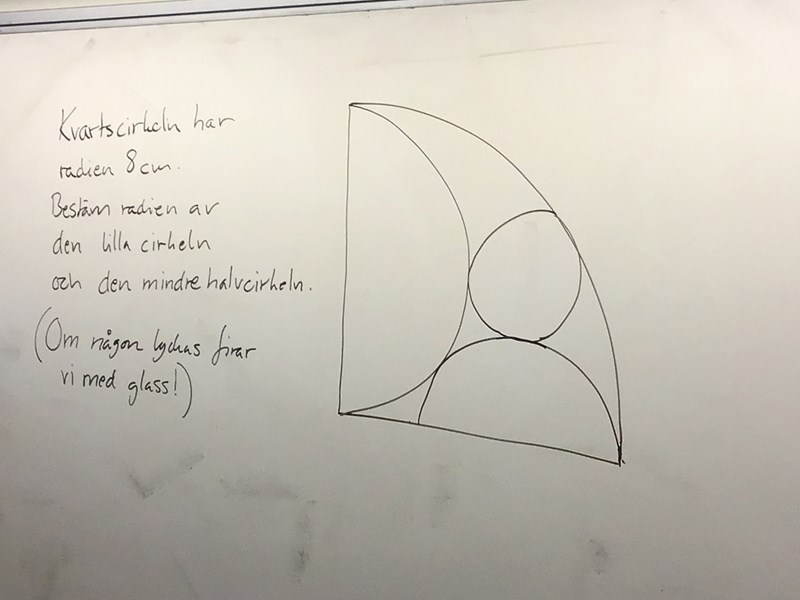 Kvartscirkeln har
radien 8cm.
Bestäm radien av
den lilla cirkeln
och den mindre halvcirkeln.
(Om någon lyckas firar
vi med glass!)